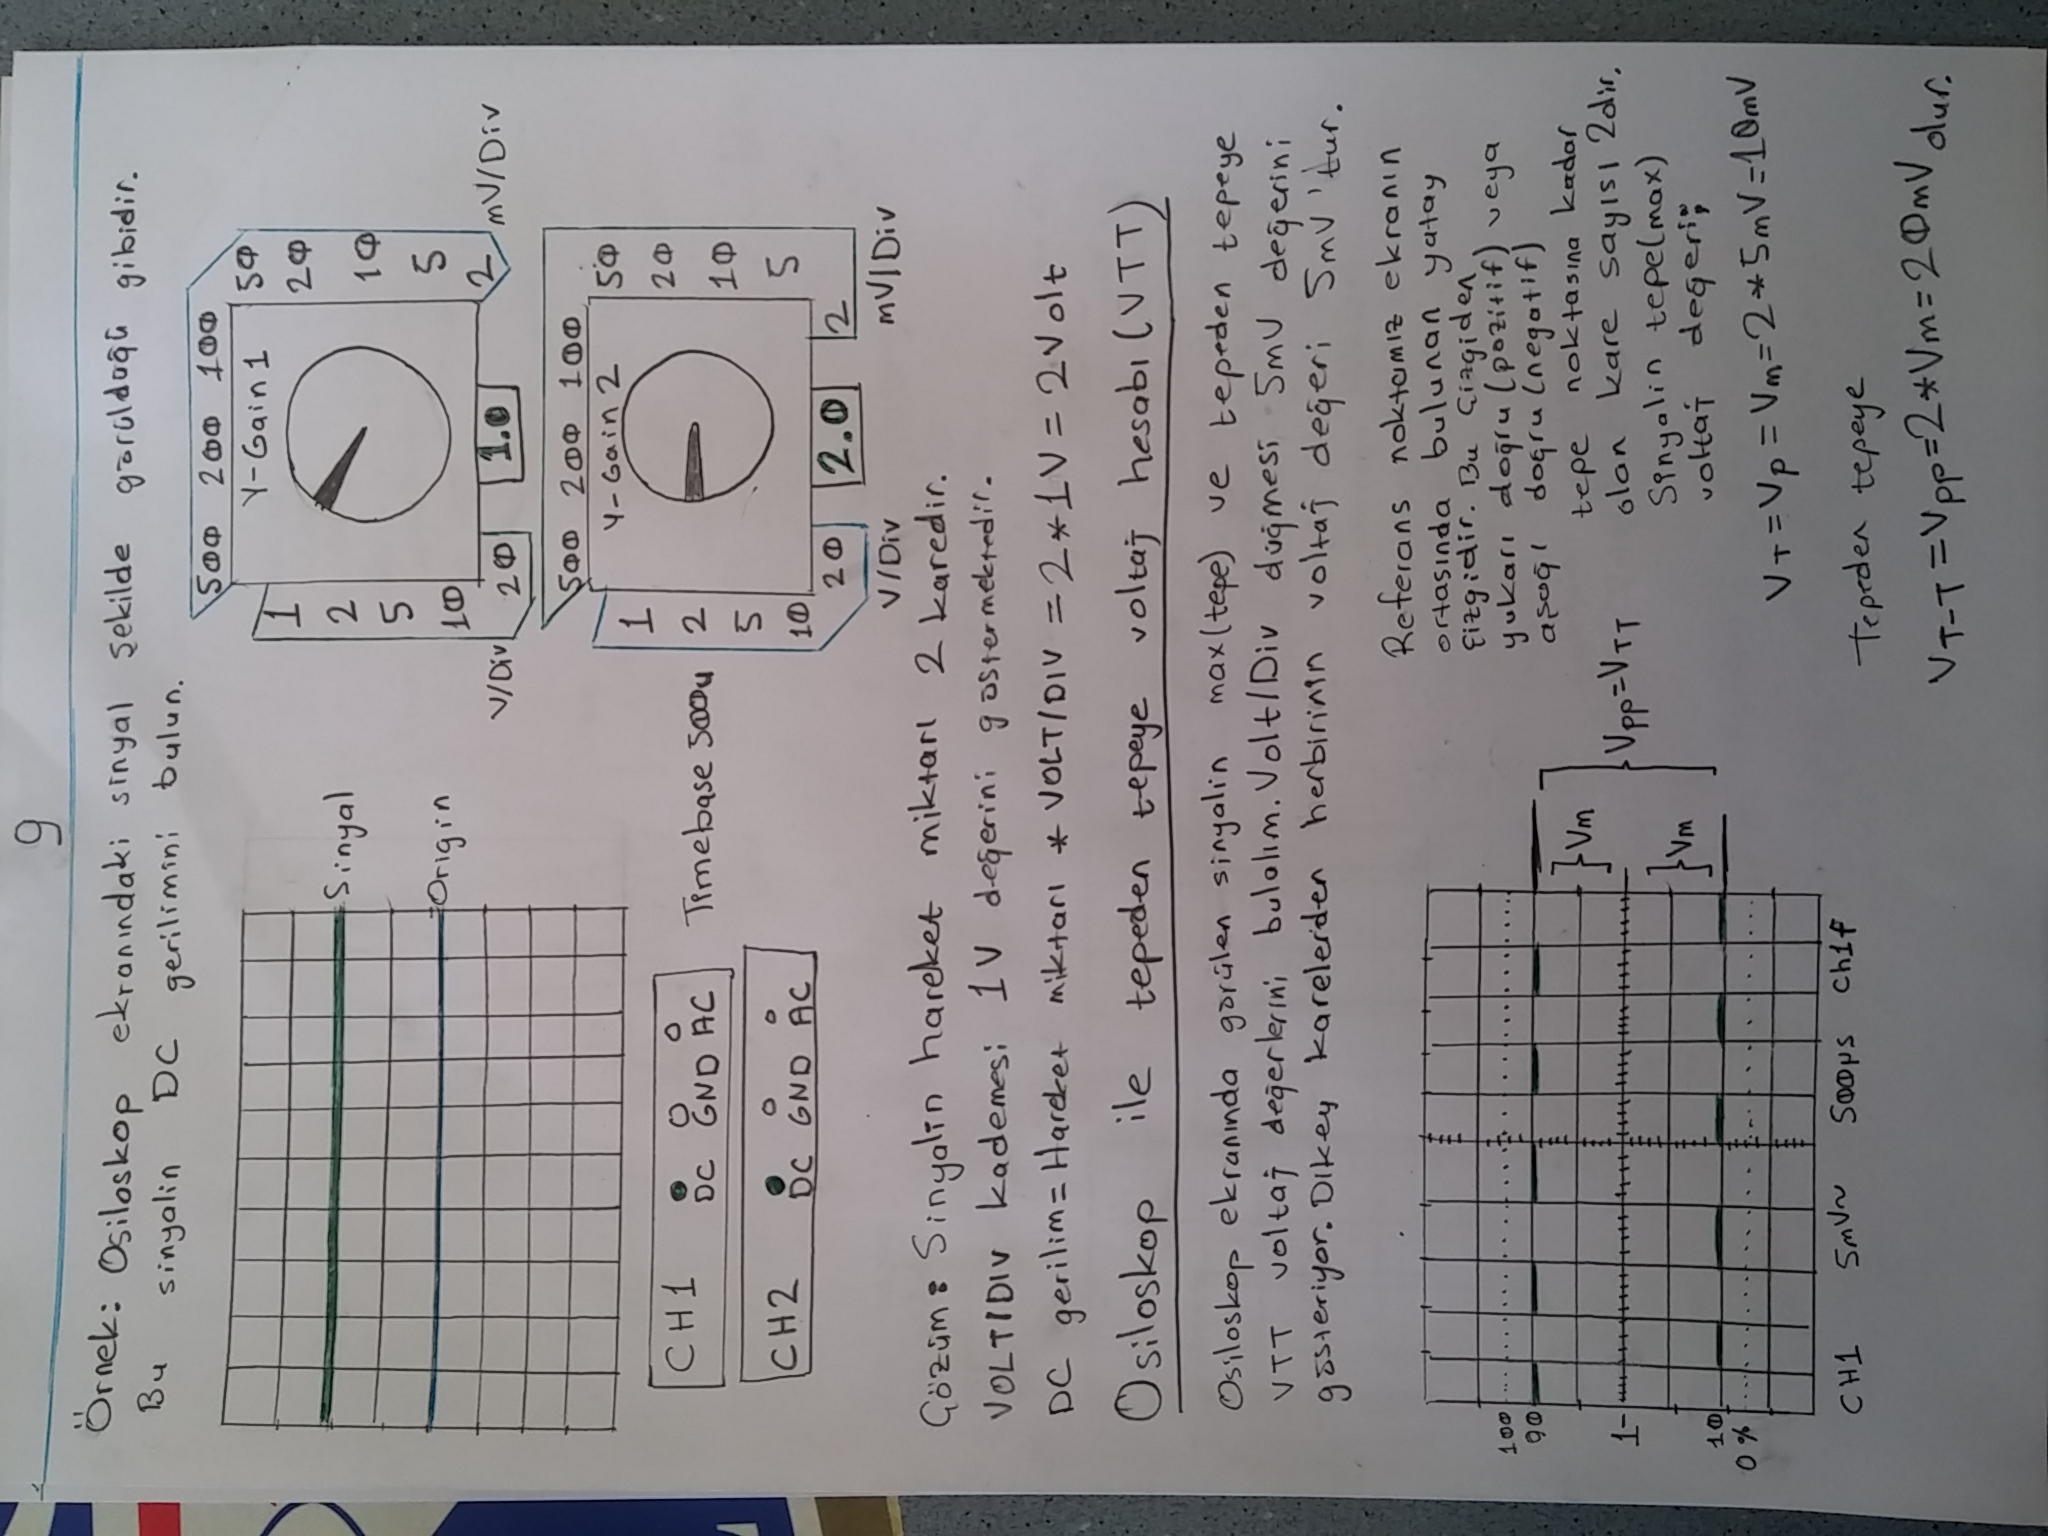 9
Örnek: Osiloskop ekranındaki sinyal şekilde görüldüğü gibidir.
Bu sinyalin DC gerilimini bulun.
500 200 100
Y-Gain 1
50
20
10
5
2
mV/Div
1
2
5
10
20
V/Div
1.0
Sinyal
Origin
500 200 100
Y-Gain 2
50
20
10
5
2
mV/Div
1
2
5
10
20
V/Div
2.0
CH1 DC GND AC
Timebase 500u
CH2 DC GND AC
Çözüm: Sinyalin hareket miktarı 2 karedir.
VOLT/DIV kademesi 1V değerini göstermektedir.
DC gerilim = Hareket miktarı * VOLT/DIV = 2*1V = 2Volt
Osiloskop ile tepeden tepeye voltaj hesabı (VTT)
Osiloskop ekranında görülen sinyalin max(tepe) ve tepeden tepeye
VTT voltaj değerlerini bulalım. Volt/Div düğmesi 5mV değerini
gösteriyor. Dikey karelerden herbirinin voltaj değeri 5mV'tur.
Referans noktamız ekranın
ortasında bulunan yatay
çizgidir. Bu çizgiden
yukarı doğru (pozitif) veya
aşağı doğru (negatif)
tepe noktasına kadar
olan kare sayısı 2dir.
Sinyalin tepe(max)
voltaj değeri;
VT = Vp = Vm = 2*5mV = 10mV
Tepeden tepeye
VT-T = Vpp = 2*Vm = 20mV olur.
100
90
1-
10
0%
Vm
Vm
Vpp = VTT
CH1 5mV~ 500µs Ch1f